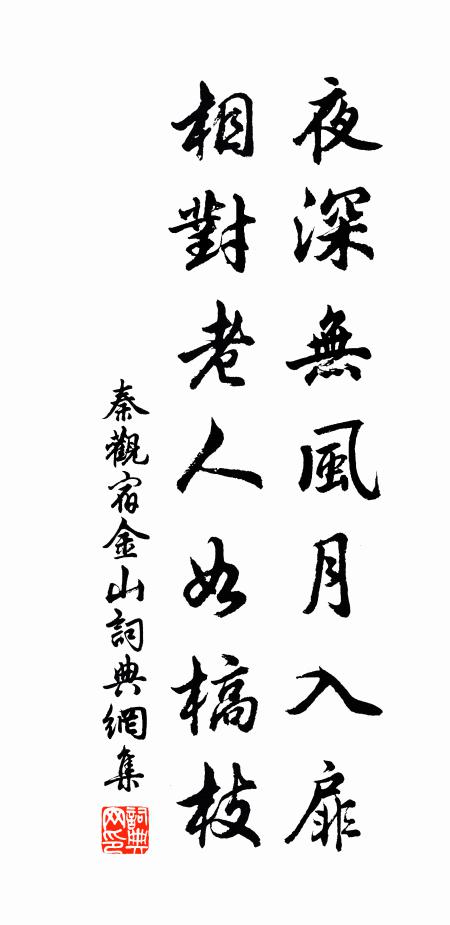 夜深無風月入扉
相對老人如槁枝
秦觀宿金山詞典網集
詞典网印